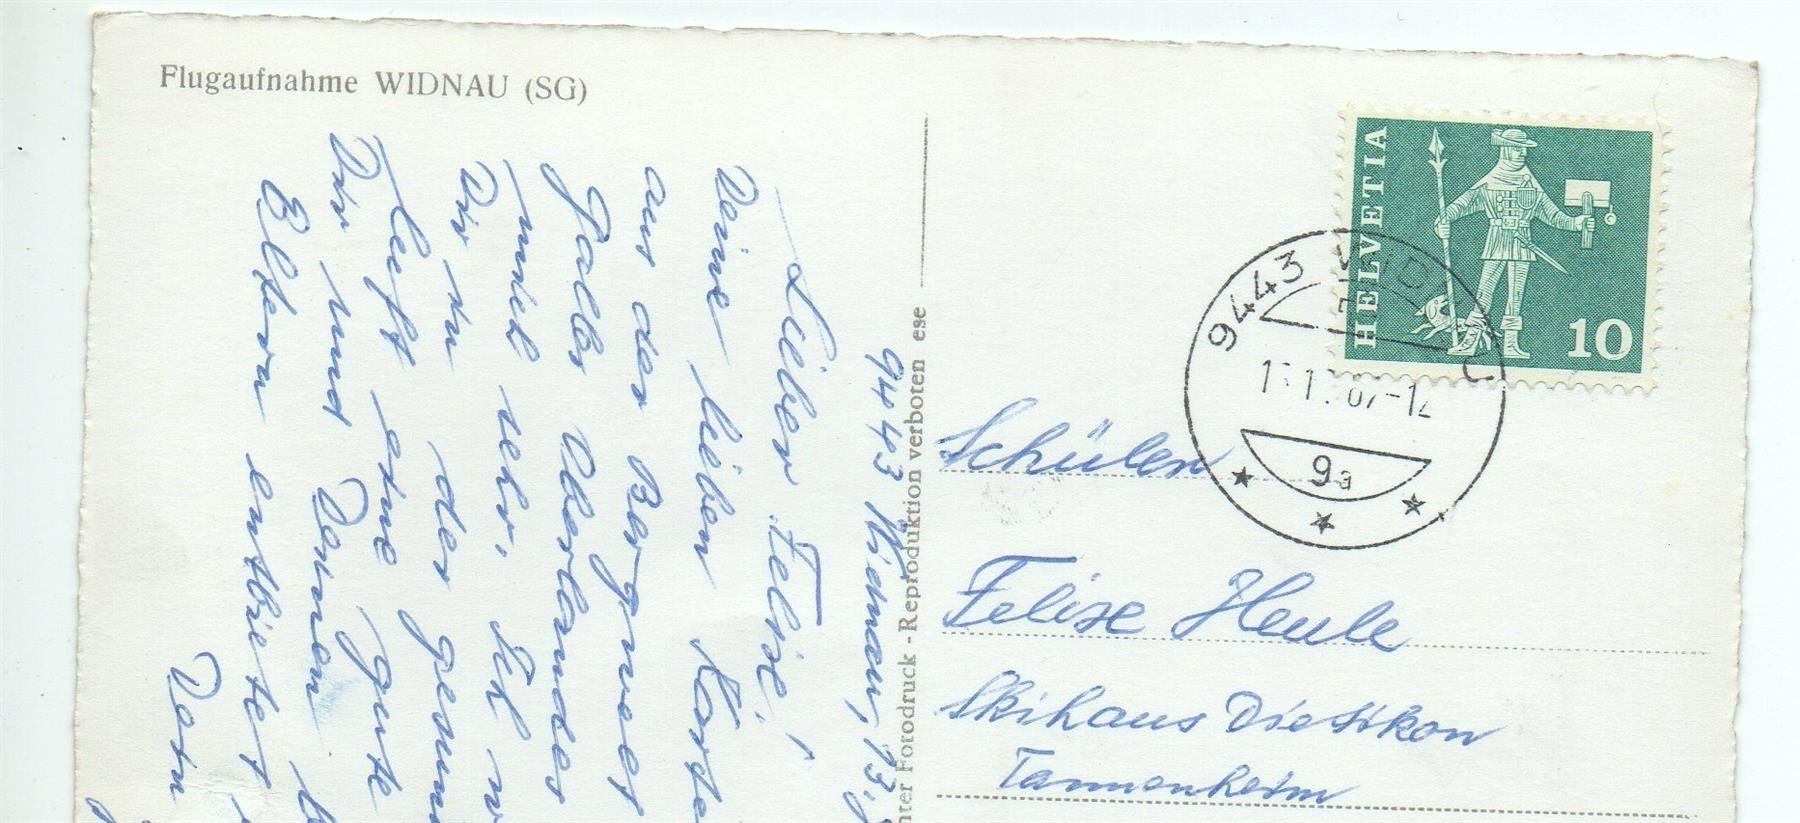 Flugaufnahme WIDNAU (SG)
9443 Widnau, 13.
Lieber Felise!
Deine lieben Karte
aus der Bergwelt
Galler Oberlandes
mich sehr. Ich
Dir in der gesun
Luft eine gute
Dir und Deinen
Eltern entbietet
Dein
Fotodruck - Reproduktion verboten ese
HELVETIA
10
9443 WIDNAU
-12
9a
Schülen
Felise Heule
Skihaus Dietikon
Tannenheim